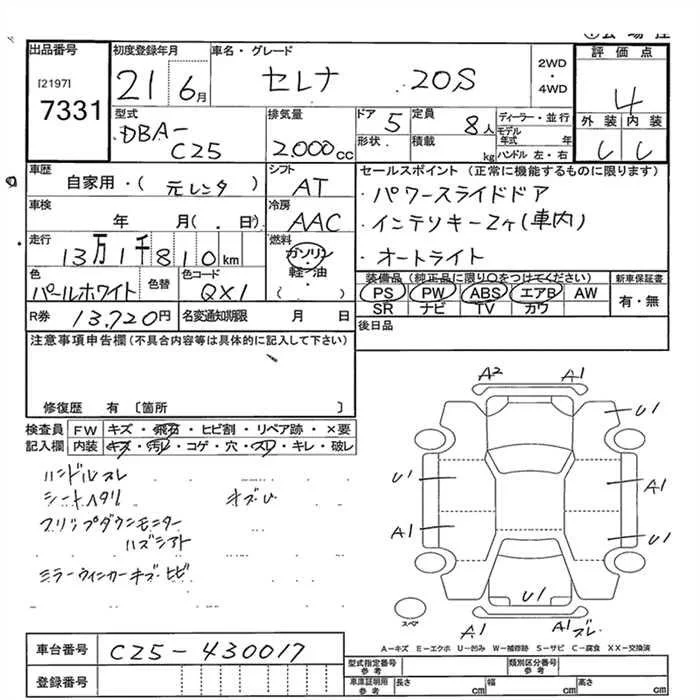 出品番号 初度登録年月 車名・グレード 2WD・4WD 評価点
[2197]
7331 21 6月 セレナ 20S 4
型式 排気量 ドア 定員 ディーラー・並行 外装 内装
DBA-C25 2.000cc 5 8人 モデル年式 年
形状 積載 kg ハンドル 左・右
車歴 シフト セールスポイント (正常に機能するものに限ります)
自家用・( 元レンタ ) AT ・パワースライドドア
車検 冷房 ・インテリキー2ヶ(車内)
年 月( . 日) AAC ・オートライト
走行 燃料
13万1千810km ガソリン・軽油・( )
色 色替 色コード 装備品 (純正品に限り○をつけてください) 新車保証書
パールホワイト QX1 PS PW ABS エアB AW 有・無
SR ナビ TV カワ
R券 13.720円 名変通知期限 月 日 後日品
注意事項申告欄 (不具合内容等は具体的に記入して下さい)
修復歴 有 〔箇所 〕
検査員 FW キズ・飛石・ヒビ割・リペア跡・×要
記入欄 内装 キズ・汚レ・コゲ・穴・スレ・キレ・破レ
ハンドルスレ
シートヘタリ キズU
フリップダウンモニター
ハズシアト
ミラーウィンカーキズ・ヒビ
A2 A1
U1
U1 A1
A1 U1
U1
スペア
A1 A1 ズレ
A-キズ E-エクボ U-凹み W-補修跡 S-サビ C-腐食 XX-交換済
車台番号 C25-430017
登録番号
型式指定番号 類別区分番号
車庫証明用参考 長さ cm 幅 cm 高さ cm